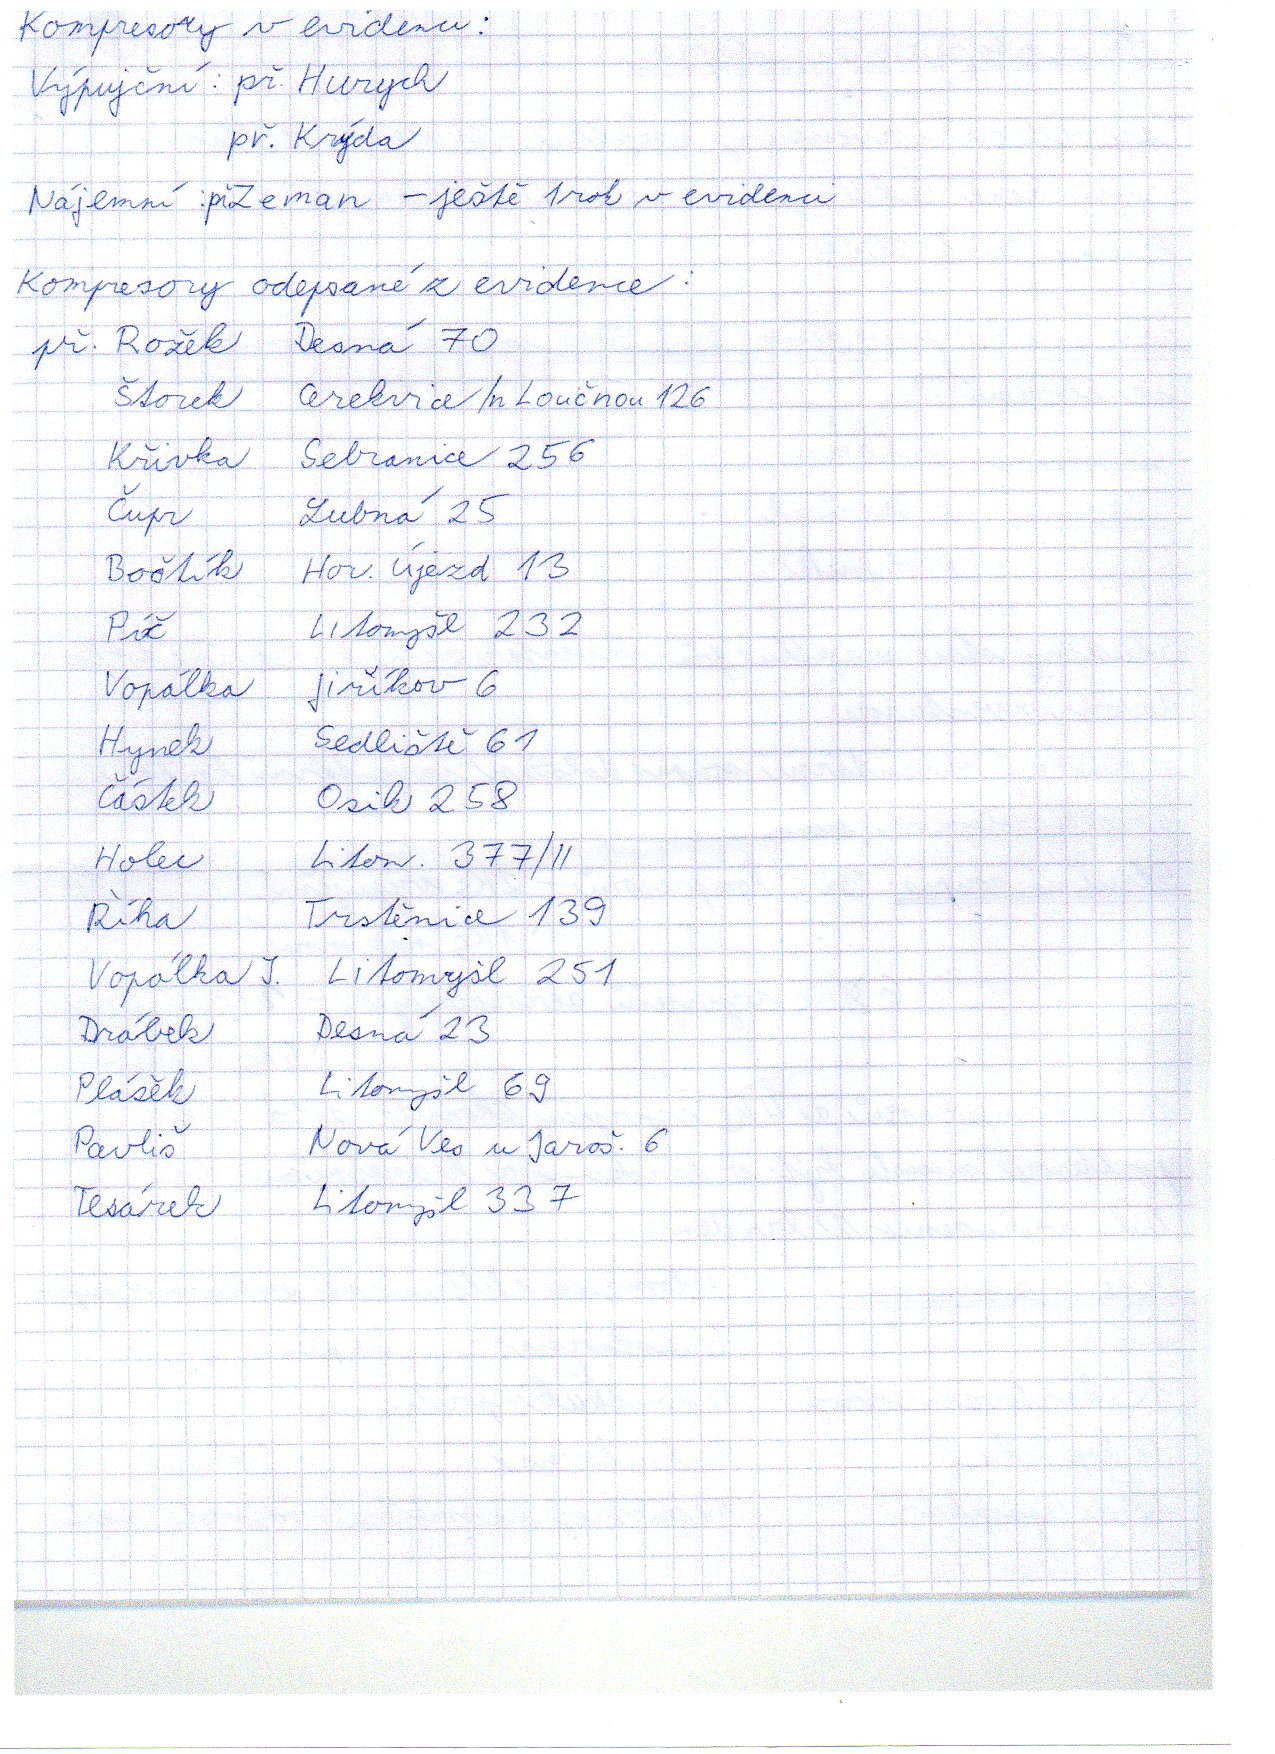 Kompresory v evidenci:
Výpujční: př. Hurych
př. Krýda
Nájemní: př Zeman - ještě 1 rok v evidenci
Kompresory odepsané z evidence:
př. Rožek Desná 70
Štorek Cerekvice /n Loučnou 126
Křivka Sebranice 256
Čupr Lubná 25
Boštík Hor. Újezd 13
Píč Litomyšl 232
Vopálka Jiříkov 6
Hynek Sedliště 61
Částek Osík 258
Holec Litom. 377/II
Říha Trstěnice 139
Vopálka J. Litomyšl 251
Drábek Desná 23
Plášek Litomyšl 69
Pavliš Nová Ves u Jaroš. 6
Tesárek Litomyšl 337